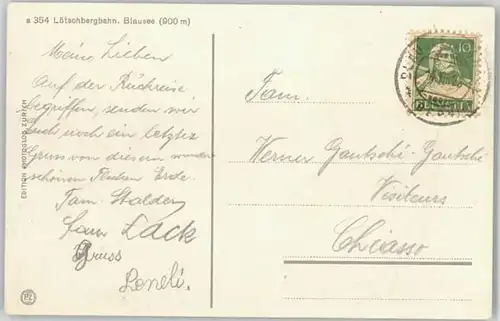 a 354 Lötschbergbahn. Blausee (900 m)
Meine Lieben
Auf der Rückreise
begriffen, senden wir
Euch noch ein letzter
Gruss von diesem wunder
schönen Flecken Erde.
Fam. Stalder
Fam. Lack
Gruss
EDITION PHOTOGLOB ZÜRICH
10
HELVETIA
Fam.
Werner Gautschi-Gautschi
Visiteurs
Chiasso